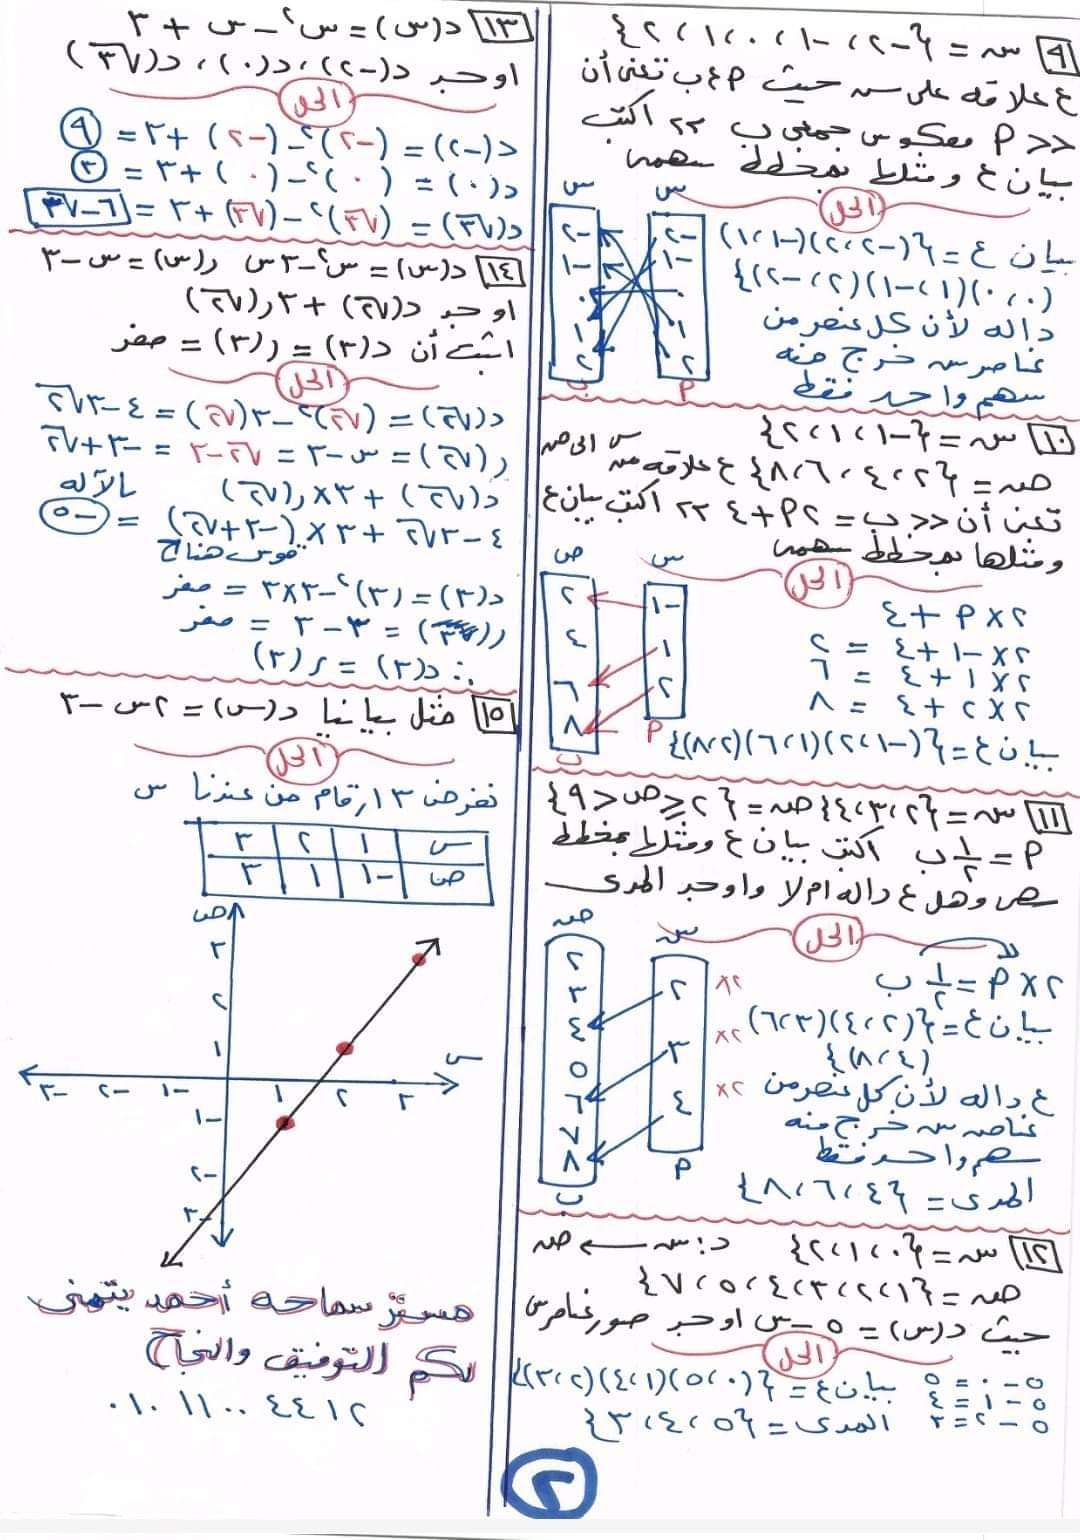 ٩ س = {-٢، -١، ٠، ١، ٢}
ع علاقه على س حيث م ع ب تعنى أن
<< م معكوس جمعى ب >> اكتب
بيان ع ومثلها بمخطط سهمى
الحل
س س
بيان ع = {(-٢،٢)(-١،١)
(٠،٠)(١،-١)(٢،-٢)}
داله لأن كل عنصر من
عناصر س خرج منه
سهم واحد فقط
-٢ -٢
-١ -١
٠ ٠
١ ١
٢ ٢
م ب
١٠ س = {-١، ١، ٢}
ص = {٢، ٤، ٦، ٨} ع علاقه من س الى ص
تعنى أن << ب = ٢م + ٤ >> اكتب بيان ع
ومثلها بمخطط سهمى
الحل
س ص
٢ × م + ٤
٢ × -١ + ٤ = ٢
٢ × ١ + ٤ = ٦
٢ × ٢ + ٤ = ٨
-١ ٢
١ ٤
٢ ٦
٨
م ب
بيان ع = {(-١،٢)(١،٦)(٢،٨)}
١١ س = {٢،٣،٤} ص = {٢ ≤ ص < ٩}
م = ١/٢ ب اكتب بيان ع ومثلها بمخطط
سهمى وهل ع داله ام لا واوجد المدى
الحل
س ص
٢ × م = ١/٢ ب
بيان ع = {(٢،٤)(٣،٦)
(٤،٨)}
ع داله لأن كل عنصر من
عناصر س خرج منه
سهم واحد فقط
المدى = {٤، ٦، ٨}
×٢ ٢ ٢
×٢ ٣ ٣
×٢ ٤ ٤
٥
٦
٧
٨
م ب
١٢ س = {٠، ١، ٢} د: س ← ص
ص = {١،٢،٣،٤،٥،٧}
حيث د(س) = ٥ - س اوجد صور عناصر س
الحل
٥ - ٠ = ٥ بيان ع = {(٠،٥)(١،٤)(٢،٣)}
٥ - ١ = ٤
٥ - ٢ = ٣ المدى = {٥، ٤، ٣}
١٣ د(س) = س² - س + ٣
اوجد د(-٢)، د(٠)، د(√٣)
الحل
د(-٢) = (-٢)² - (-٢) + ٣ = ٩
د(٠) = (٠)² - (٠) + ٣ = ٣
د(√٣) = (√٣)² - (√٣) + ٣ = ٦ - √٣
١٤ د(س) = س² - ٣س ر(س) = س - ٣
اوجد د(√٢) + ٣ر(√٢)
اثبت أن د(٣) = ر(٣) = صفر
الحل
د(√٢) = (√٢)² - ٣(√٢) = ٤ - ٣√٢
ر(√٢) = س - ٣ = √٢ - ٣ = -٣ + √٢
د(√٢) + ٣ × ر(√٢) بالآله
٤ - ٣√٢ + ٣ × (-٣ + √٢) = -٥
قوس هناح
د(٣) = (٣)² - ٣×٣ = صفر
ر(٣) = ٣ - ٣ = صفر
∴ د(٣) = ر(٣)
١٥ مثل بيانيا د(س) = ٢س - ٣
الحل
نفرض ٣ ارقام من عندنا س
س ١ ٢ ٣
ص -١ ١ ٣
ص
٣
٢
١
س
-٣ -٢ -١ ١ ٢ ٣
-١
-٢
-٣
مستر سماحه أحمد يتمنى
لكم التوفيق والنجاح
٠١٠ ١١٠٠ ٤٤١٢
٢